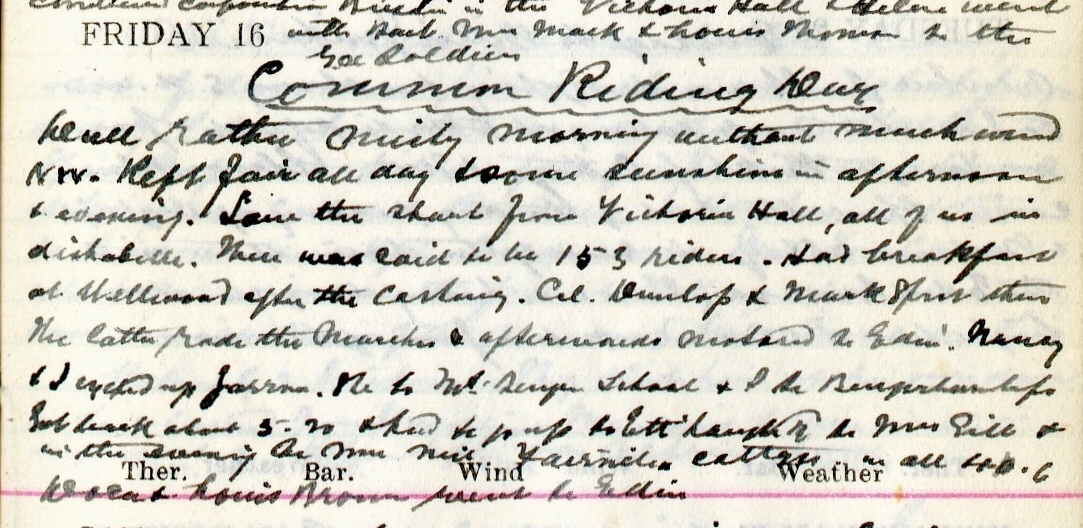 in the Victoria Hall & Helene went
FRIDAY 16 with Bart. Mrs Mack & Louis to the
Ex Soldiers
Common Riding Day
Dull rather misty morning without much wind
NW. Kept fair all day & some sunshine in afternoon
& evening. Saw the start from Victoria Hall, all of us in
dishabille. There was said to be 153 riders. Had breakfast
at Wellwood after the Casting. Col. Dunlop & Mark there
The latter rode the Marches & afterwards motored to Edin. Nancy
& I cycled up Yarrow. She to School & I to
Got back about 5-20 & had to go up to to Mrs &
in the evening to Mrs cottage, in all
Ther. Bar. Wind Weather
Louis Brown went to Edin